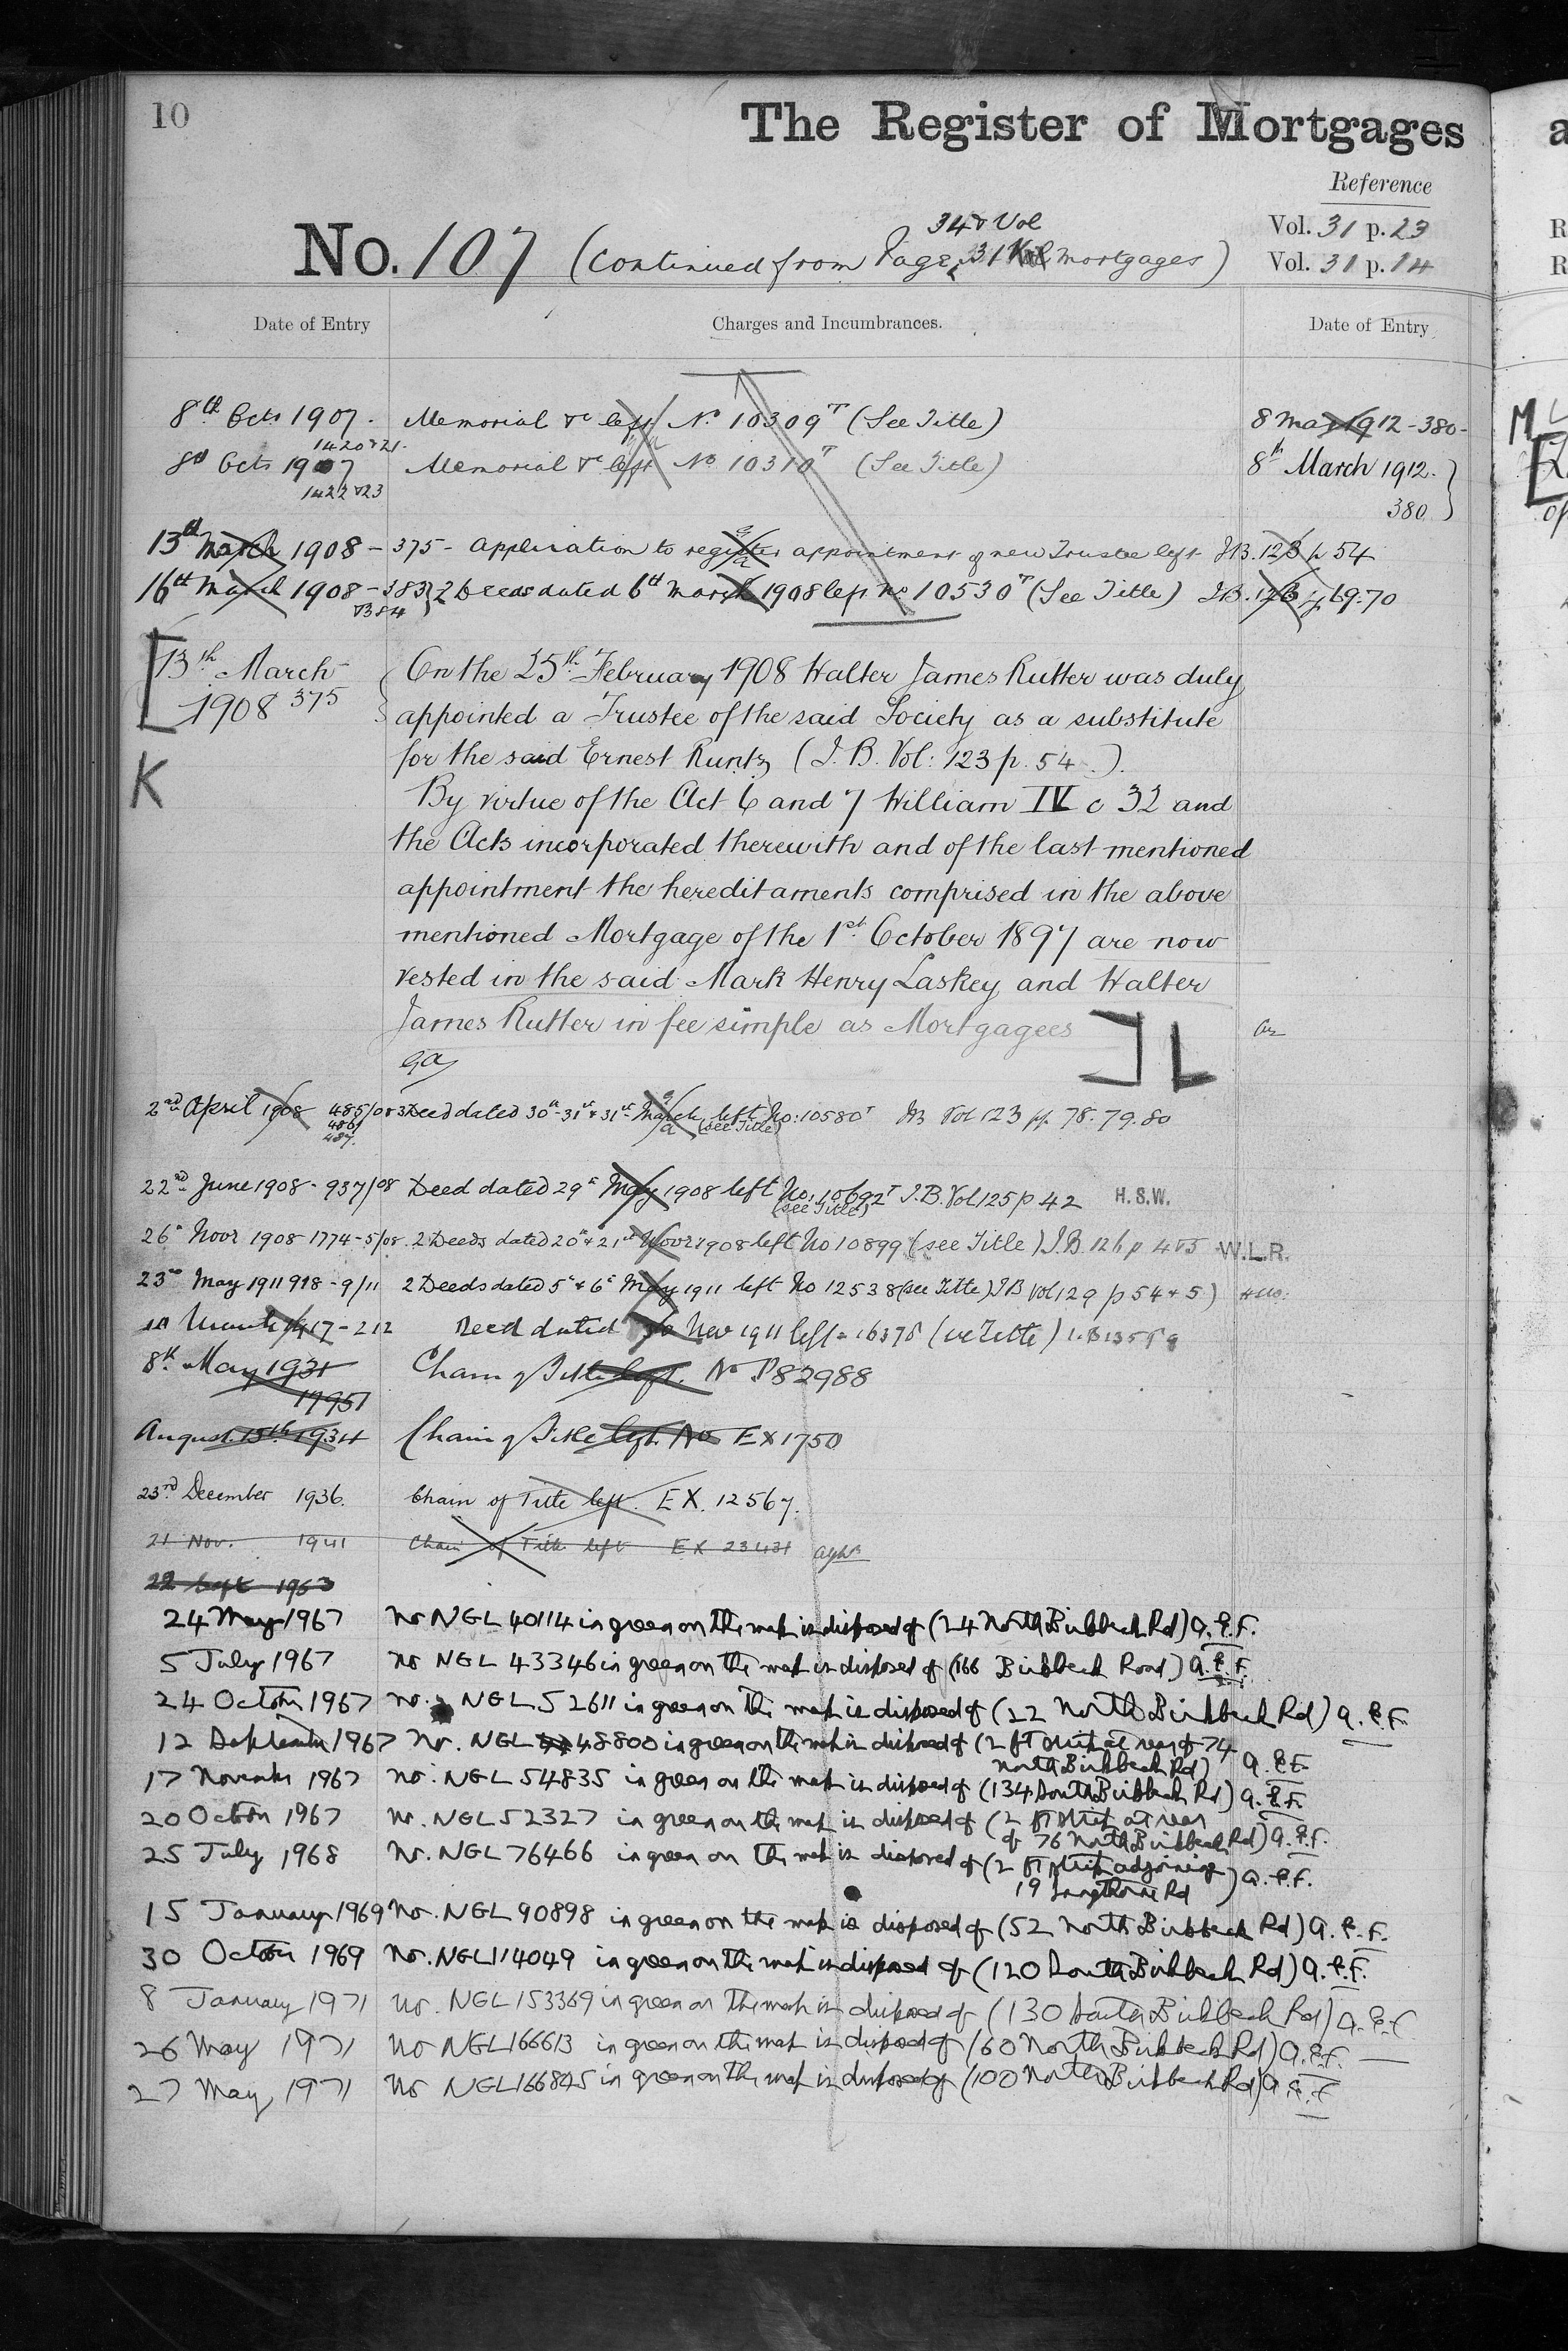 10
The Register of Mortgages
Reference
Vol. 31 p. 23
Vol. 31 p. 14
34 & Vol
No. 107 (Continued from Page 31 Vol mortgages)
Date of Entry Charges and Incumbrances. Date of Entry
8th Octr 1907. Memorial &c left No 10309T (See Title) 8 Mar 1912-380-
1420&21.
8th Octr 1907 Memorial &c left No 10310T (See Title) 8th March 1912.
1422&23 380
13th March 1908 - 375 - Application to register appointment of new Trustee left IB. 123 p 54
16th March 1908 - 383 2 Deeds dated 6th March 1908 left No 10530T (See Title) IB. 123 p 69.70
&384
[13th March On the 25th February 1908 Walter James Rutter was duly
1908 375 appointed a Trustee of the said Society as a substitute
for the said Ernest Runtz (I. B. Vol: 123 p. 54.).
K
By virtue of the Act 6 and 7 William IV c 32 and
the Acts incorporated therewith and of the last mentioned
appointment the hereditaments comprised in the above
mentioned Mortgage of the 1st October 1897 are now
vested in the said Mark Henry Laskey and Walter
James Rutter in fee simple as Mortgagees ] L
2nd April 1908 485/08 3 Deed dated 30th 31st & 31st March left No: 10580T IB Vol 123 pp. 78.79.80
486/ (see Title)
487.
22nd June 1908 - 937/08 Deed dated 29th May 1908 left No: 10692T I.B. Vol 125 p 42 H.S.W.
(see Title)
26th Novr 1908 1774-5/08. 2 Deeds dated 20th & 21st Novr 1908 left No 10899 (see Title) I.B 126 p 4&5 W.L.R.
23rd May 1911 918-9/11 2 Deeds dated 5th & 6th May 1911 left No 12538 (see Title) IB Vol 129 p 54 & 5)
March 1917-212 Deed dated Nov 1911 left 16378 (see Title)
8th May 1931 Chain of Title left. No P82988
17951
August 15th 1934 Chain of Title left No EX1750
23rd December 1936. Chain of Title left. EX. 12567.
21 Nov. 1941 Chain of Title left EX 23431
22 Sept 1953
24 May 1967 No NGL 40114 in green on the map is disposed of (24 North Birkbeck Rd) a.E.F.
5 July 1967 No NGL 43346 in green on the map is disposed of (166 Birkbeck Road) a.E.F.
24 October 1967 No. NGL 52611 in green on the map is disposed of (22 North Birkbeck Rd) a.E.F.
12 September 1967 No. NGL 48800 in green on the map is disposed of (2 ft strip at rear of 74
North Birkbeck Rd) a.E.F.
17 November 1967 No. NGL 54835 in green on the map is disposed of (134 South Birkbeck Rd) a.E.F.
20 October 1967 No. NGL 52327 in green on the map is disposed of (2 ft strip at rear
of 76 North Birkbeck Rd) a.E.F.
25 July 1968 No. NGL 76466 in green on the map is disposed of (2 ft strip adjoining
19 Langthorne Rd) a.E.F.
15 January 1969 No. NGL 90898 in green on the map is disposed of (52 North Birkbeck Rd) a.E.F.
30 October 1969 No. NGL114049 in green on the map is disposed of (120 South Birkbeck Rd) a.E.F.
8 January 1971 No. NGL 153369 in green on the map is disposed of (130 South Birkbeck Rd) a.E.F
26 May 1971 No NGL166613 in green on the map is disposed of (60 North Birkbeck Rd) a.E.F.
27 May 1971 No NGL166845 in green on the map is disposed of (100 North Birkbeck Rd) a.E.F